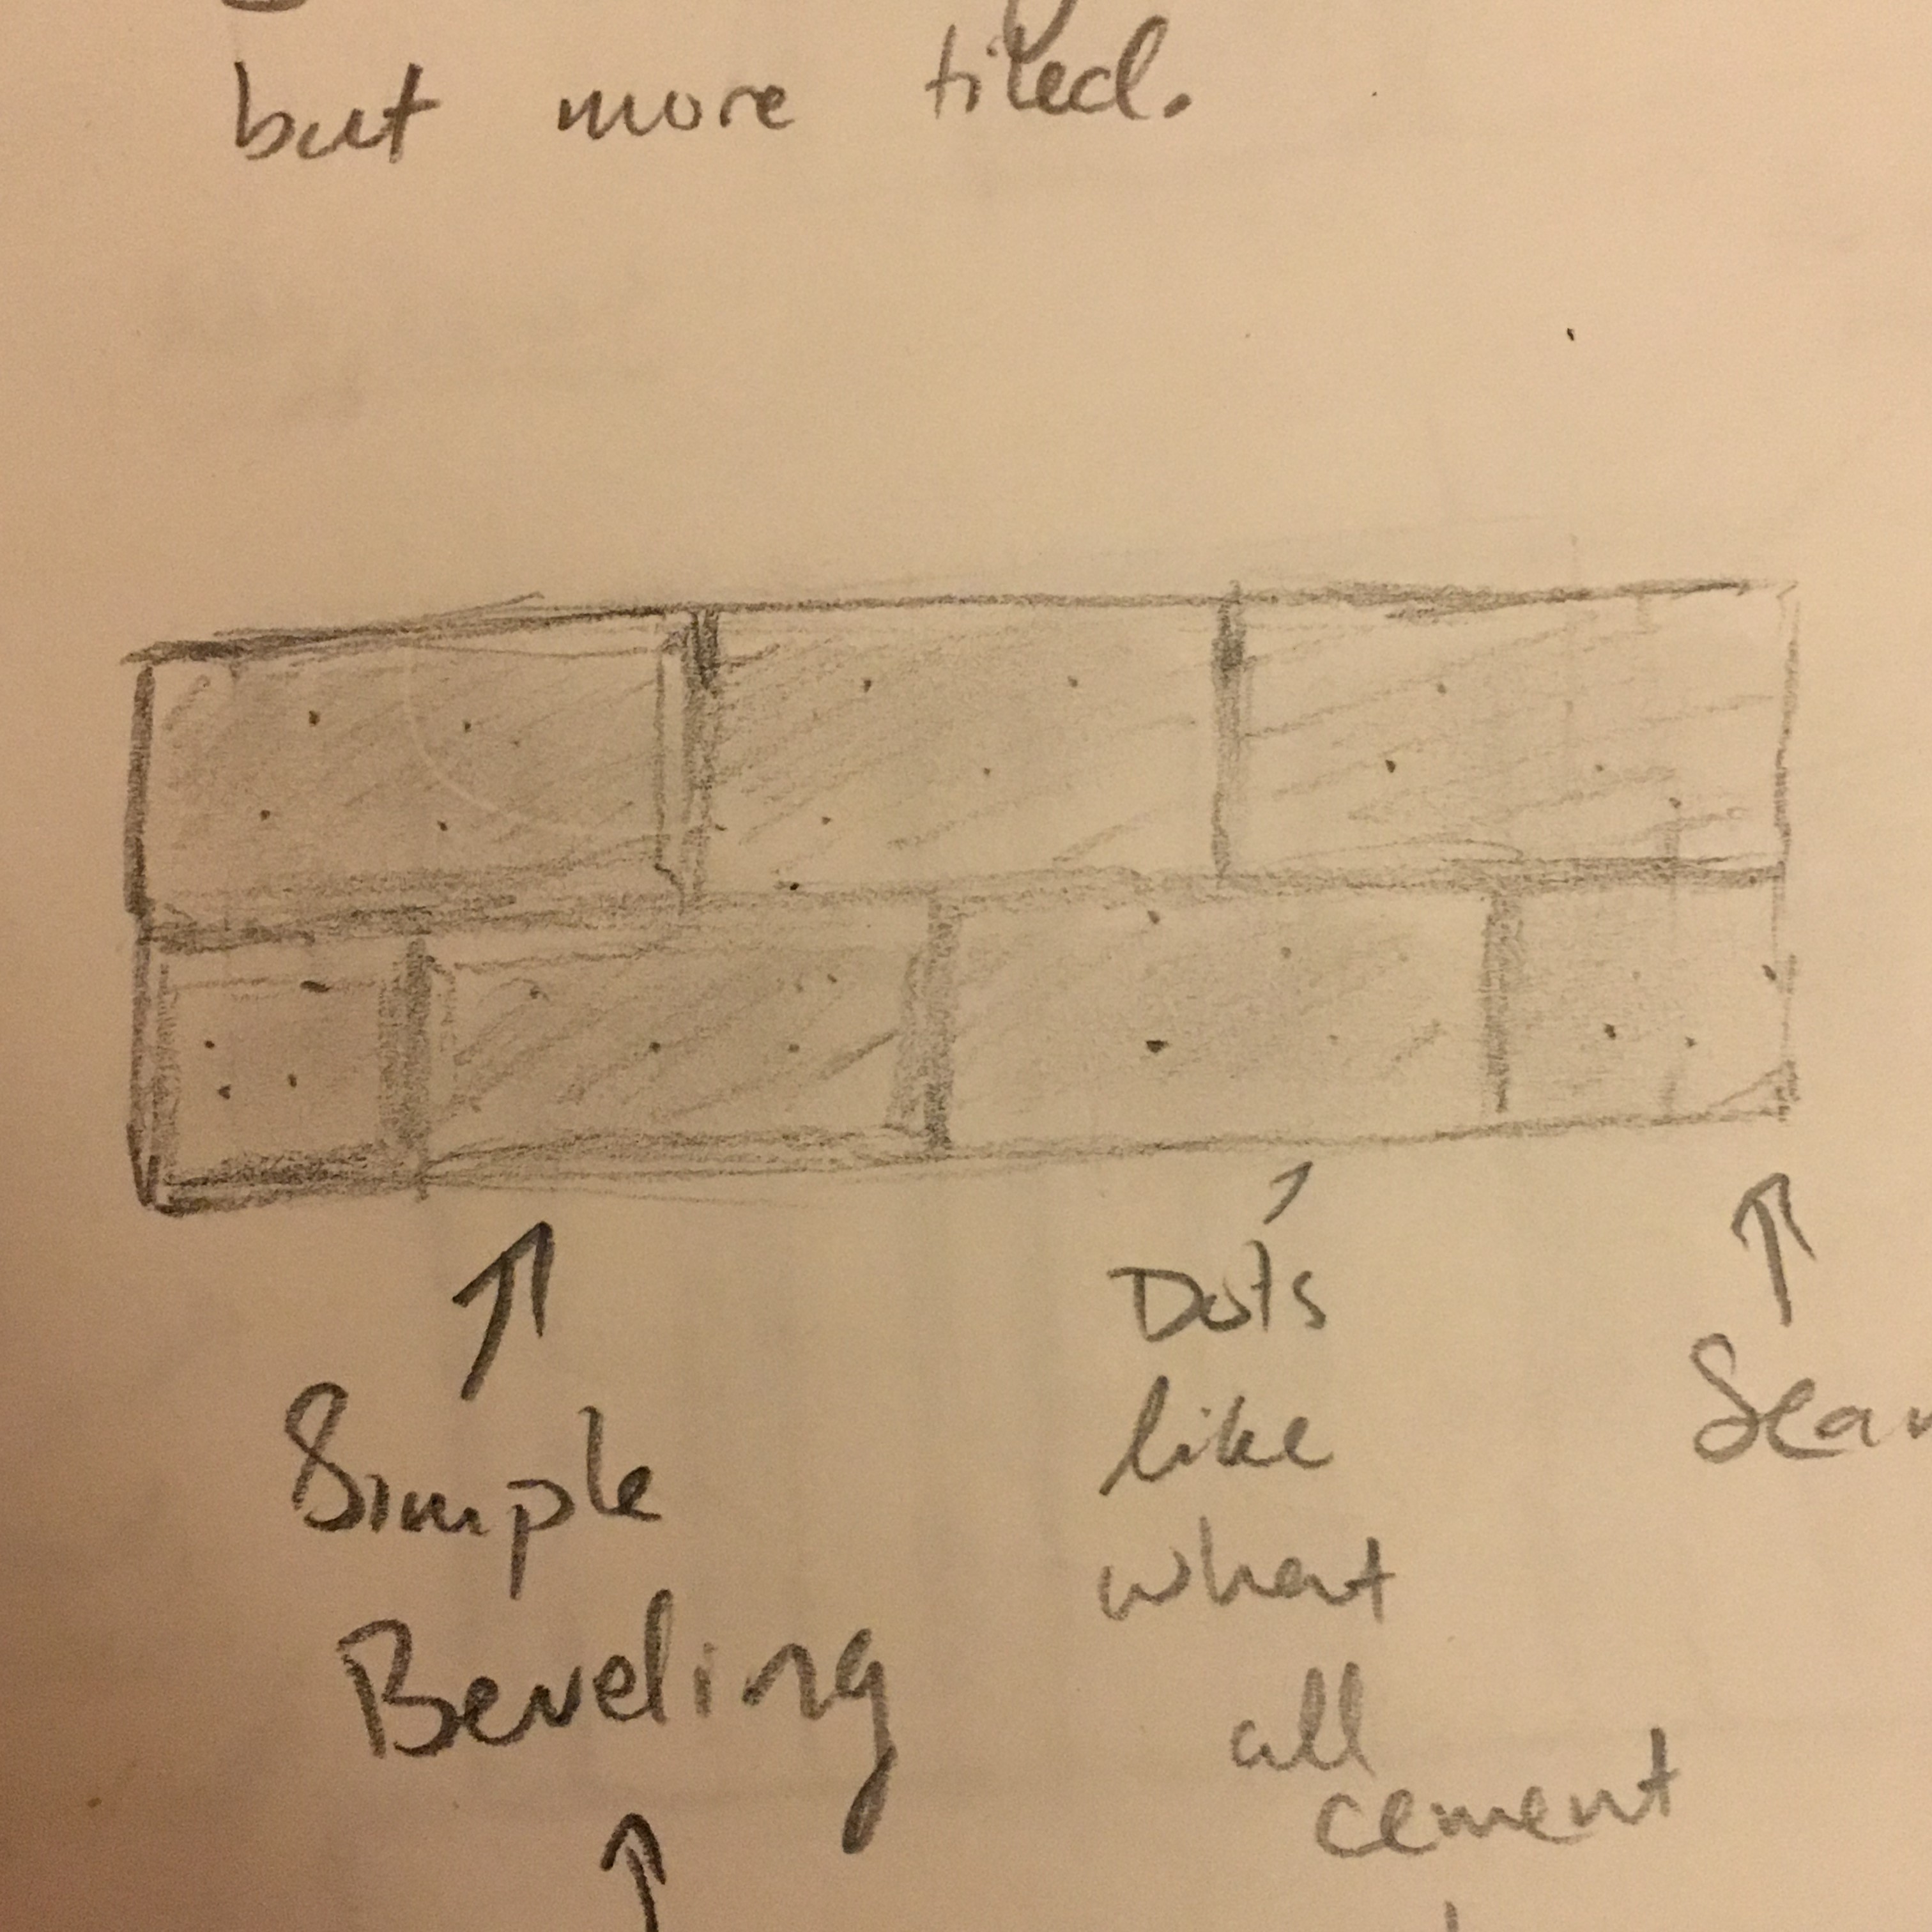 but more tiled.
Simple
Beveling
Dots
like
what
all
cement